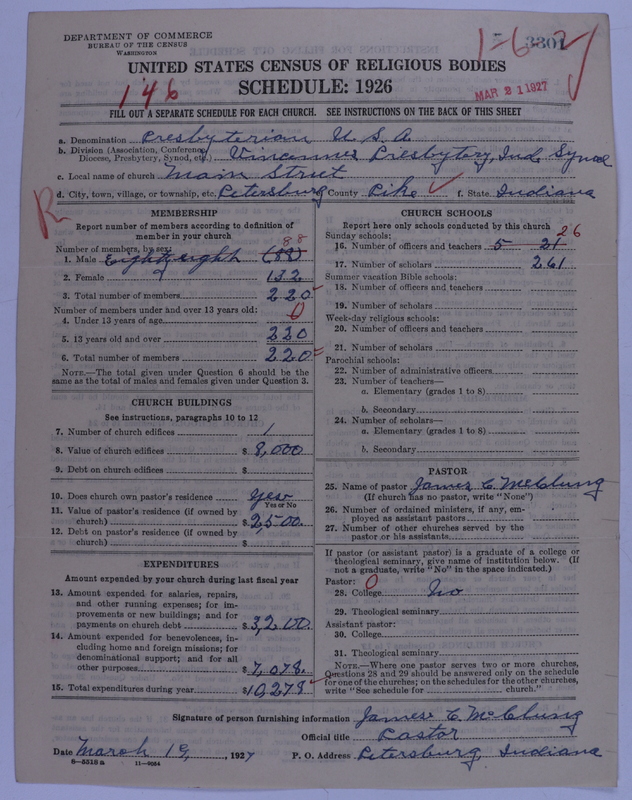 DEPARTMENT OF COMMERCE
BUREAU OF THE CENSUS
WASHINGTON
1-6 3301
UNITED STATES CENSUS OF RELIGIOUS BODIES
SCHEDULE: 1926
146
MAR 21 1927
FILL OUT A SEPARATE SCHEDULE FOR EACH CHURCH. SEE INSTRUCTIONS ON THE BACK OF THIS SHEET
a. Denomination Presbyterian U.S.A.
b. Division (Association, Conference, Diocese, Presbytery, Synod, etc.) Vincennes Presbytery, Ind. Synod
c. Local name of church Main Street
d. City, town, village, or township, etc. Petersburg County Pike f. State Indiana
R
MEMBERSHIP
Report number of members according to definition of member in your church
Number of members, by sex:
1. Male Eighty eight (88) 88
2. Female 132
3. Total number of members 220
Number of members under and over 13 years old:
4. Under 13 years of age 0
5. 13 years old and over 220
6. Total number of members 220
NOTE.—The total given under Question 6 should be the same as the total of males and females given under Question 3.
CHURCH BUILDINGS
See instructions, paragraphs 10 to 12
7. Number of church edifices 1
8. Value of church edifices $ 8,000
9. Debt on church edifices $
10. Does church own pastor's residence yes
Yes or No
11. Value of pastor's residence (if owned by church) $ 2,500.
12. Debt on pastor's residence (if owned by church) $
EXPENDITURES
Amount expended by your church during last fiscal year
13. Amount expended for salaries, repairs, and other running expenses; for improvements or new buildings; and for payments on church debt $ 3,200.
14. Amount expended for benevolences, including home and foreign missions; for denominational support; and for all other purposes $ 7,078.
15. Total expenditures during year $ 10,278
CHURCH SCHOOLS
Report here only schools conducted by this church
Sunday schools: 26
16. Number of officers and teachers 5 21
17. Number of scholars 261
Summer vacation Bible schools:
18. Number of officers and teachers
19. Number of scholars
Week-day religious schools:
20. Number of officers and teachers
21. Number of scholars
Parochial schools:
22. Number of administrative officers
23. Number of teachers—
a. Elementary (grades 1 to 8)
b. Secondary
24. Number of scholars—
a. Elementary (grades 1 to 8)
b. Secondary
PASTOR
25. Name of pastor James C. McClung
(If church has no pastor, write "None")
26. Number of ordained ministers, if any, employed as assistant pastors
27. Number of other churches served by the pastor or his assistants
If pastor (or assistant pastor) is a graduate of a college or theological seminary, give name of institution below. (If not a graduate, write "No" in the space indicated.)
Pastor: 0
28. College No
29. Theological seminary
Assistant pastor:
30. College
31. Theological seminary
NOTE.—Where one pastor serves two or more churches, Questions 28 and 29 should be answered only on the schedule for one of the churches; on the schedules for the other churches, write "See schedule for church."
Signature of person furnishing information James C. McClung
Official title Pastor
Date March 19, 1927 P. O. Address Petersburg, Indiana
8-5518a 11-9554